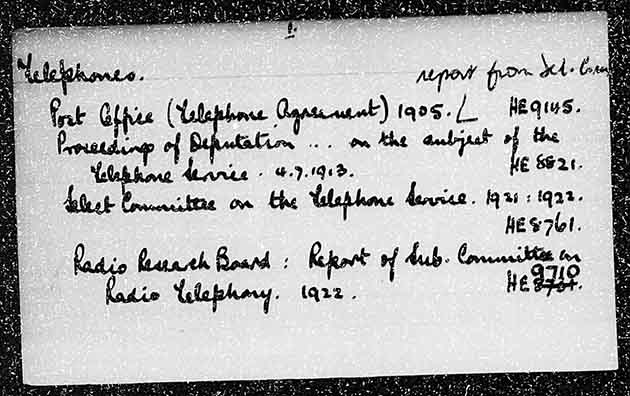 1.
Telephones. report from Sel. Com
Post Office (Telephone Agreement) 1905. L HE9145.
Proceedings of Deputation ... on the subject of the
Telephone Service. 4.7.1913. HE 8821.
Select Committee on the Telephone Service. 1921: 1922.
HE8761.
Radio Research Board: Report of Sub. Committee on
9710
Radio Telephony. 1922. HE